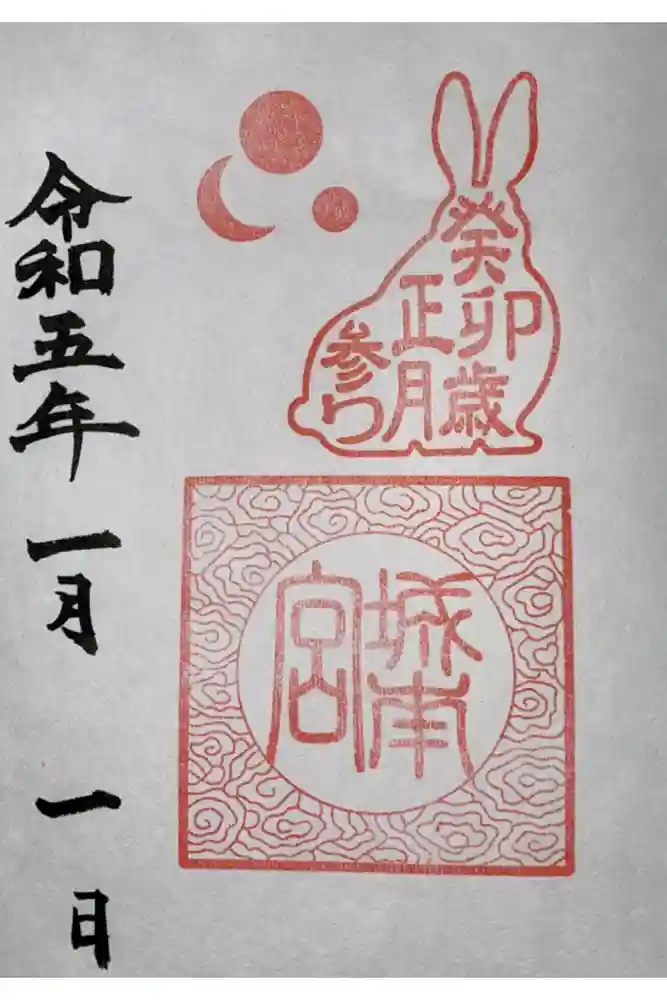 癸卯歳
正月
参り
城南
宮
令和五年一月一日